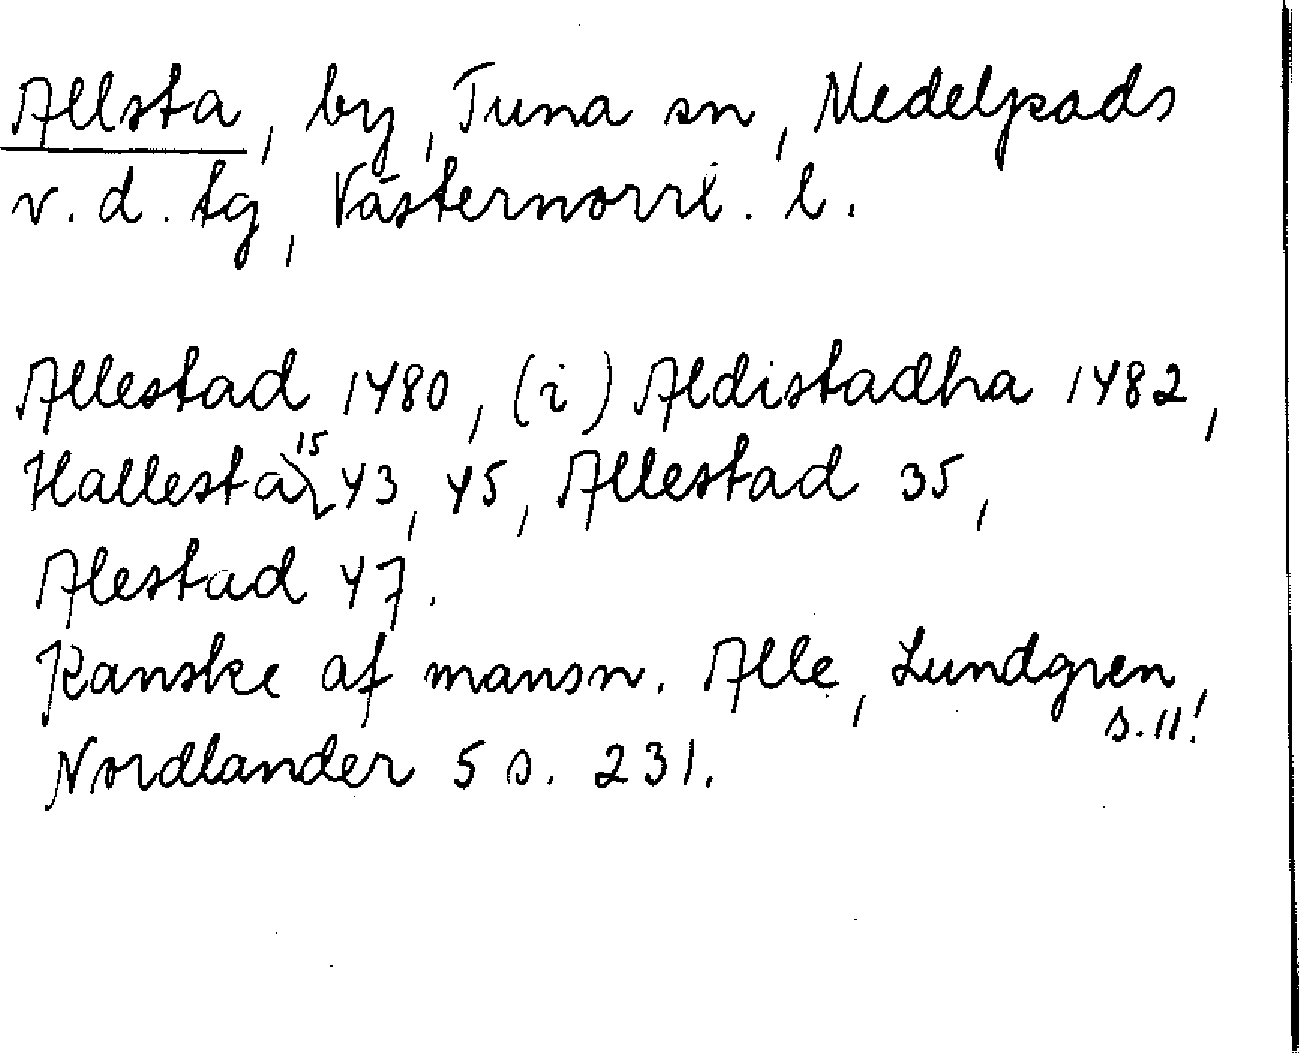 Allsta, by, Tuna sn, Medelpads
v. d. tg, Västernorrl. l.
Allestad 1480, (i) Aldistadha 1482,
Hallesta 1543, 45, Allestad 35,
Alestad 47.
Kanske af mansn. Alle, Lundgren,
s. 11!
Nordlander 5 s. 231.